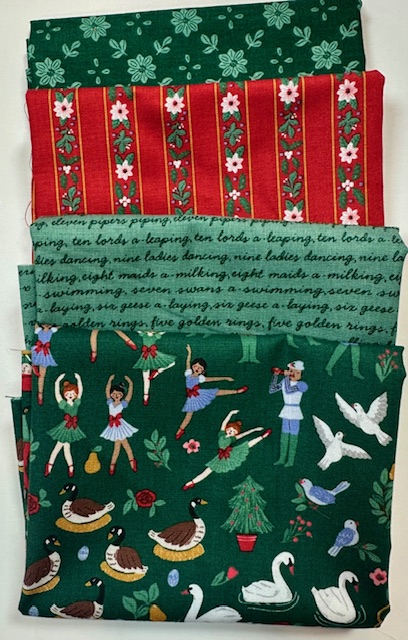 eleven pipers piping, eleven pipers piping,
ping, ten lords a-leaping, ten lords a-le
dies dancing, nine ladies dancing, nine la
ilking, eight maids a-milking, eight ma
a-swimming, seven swans a-swimming, seven sw
ing, six geese a-laying, six geese a-laying, six ge
golden rings, five golden rings, five golden rings,